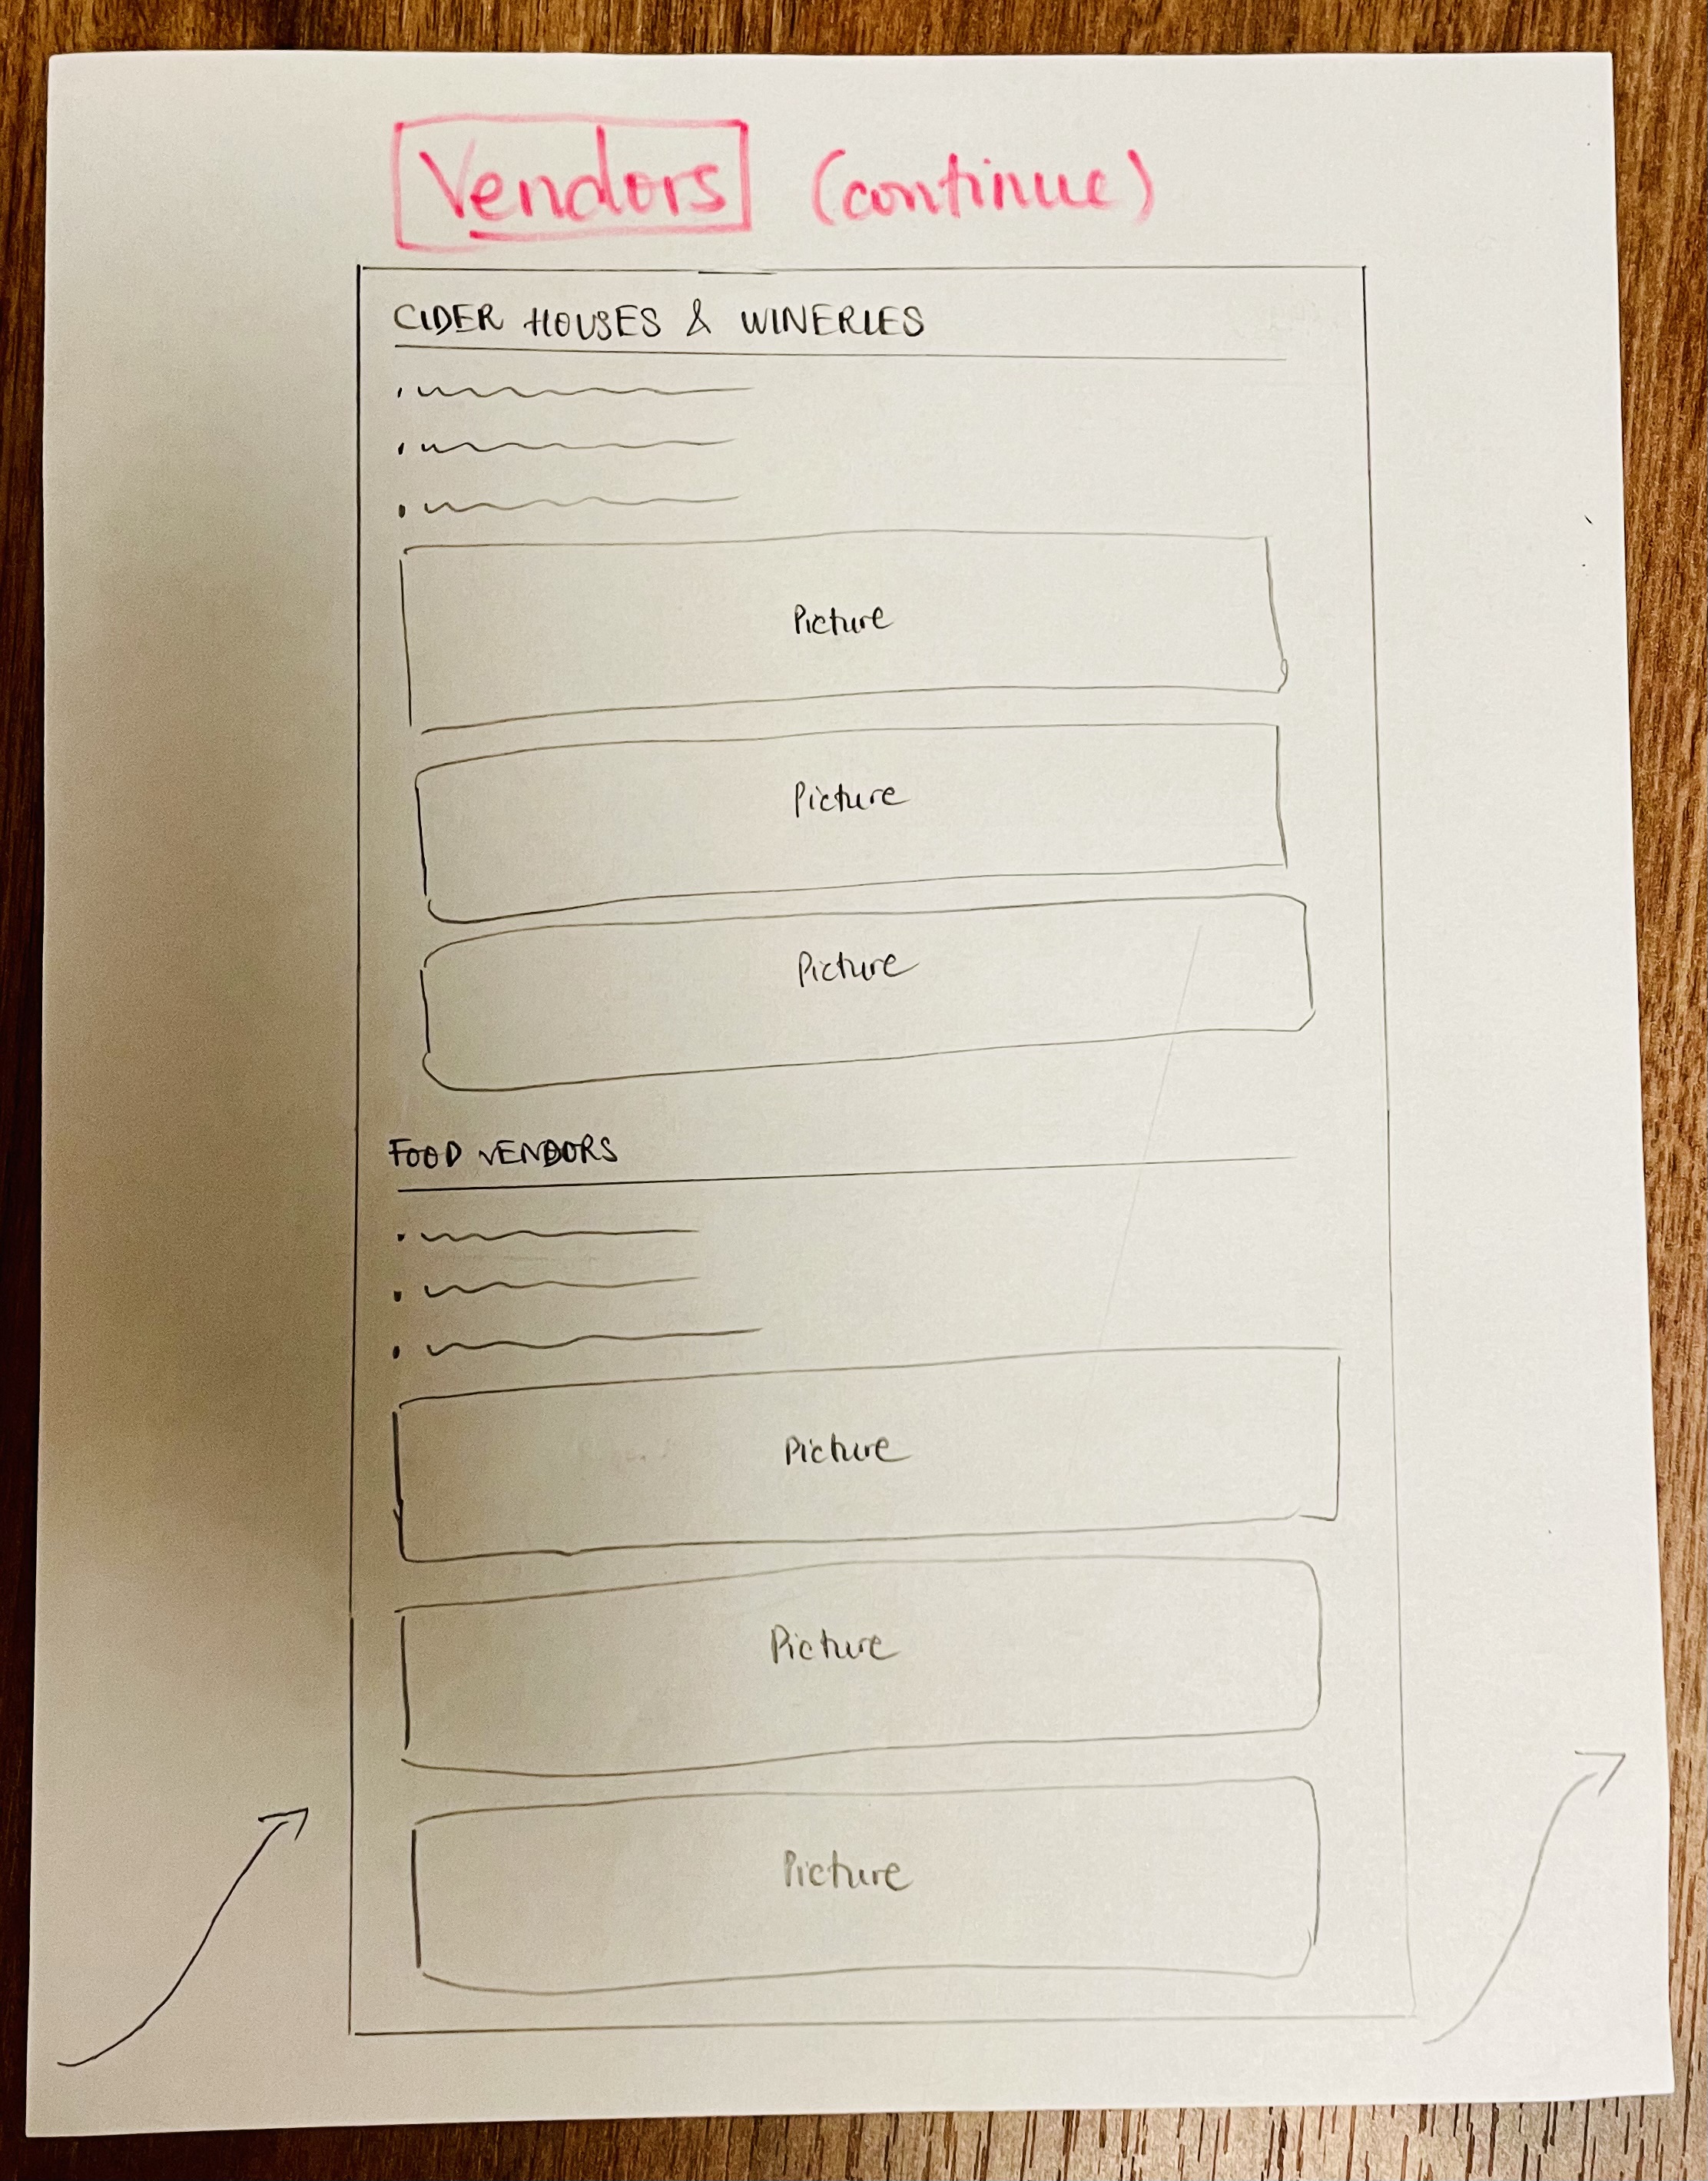 Vendors (continue)
CIDER HOUSES & WINERIES
Picture
Picture
Picture
FOOD VENDORS
Picture
Picture
Picture